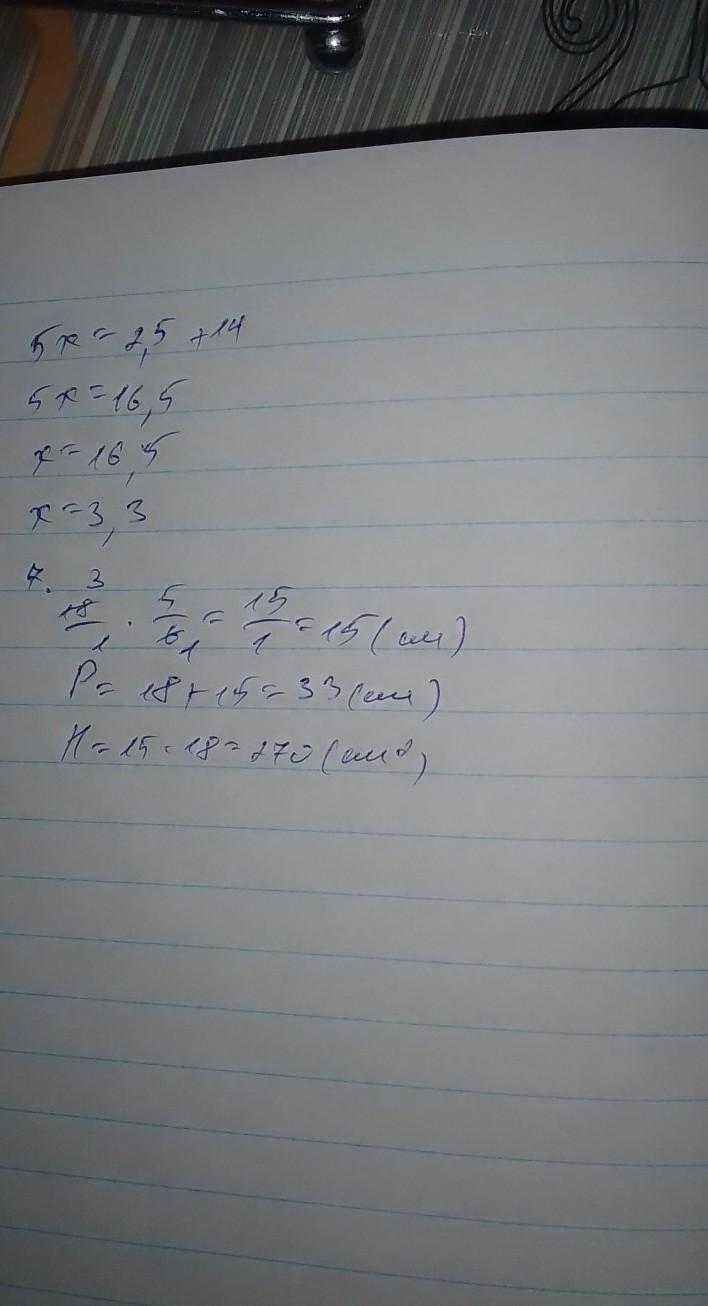 5x = 2,5 + 14
5x = 16,5
x = 16,5
x = 3,3
7. 3
18/1 1 · 5/6 1 = 15/1 = 15 (см)
P = 18 + 15 = 33 (см)
= 15 · 18 = 270 (см²)